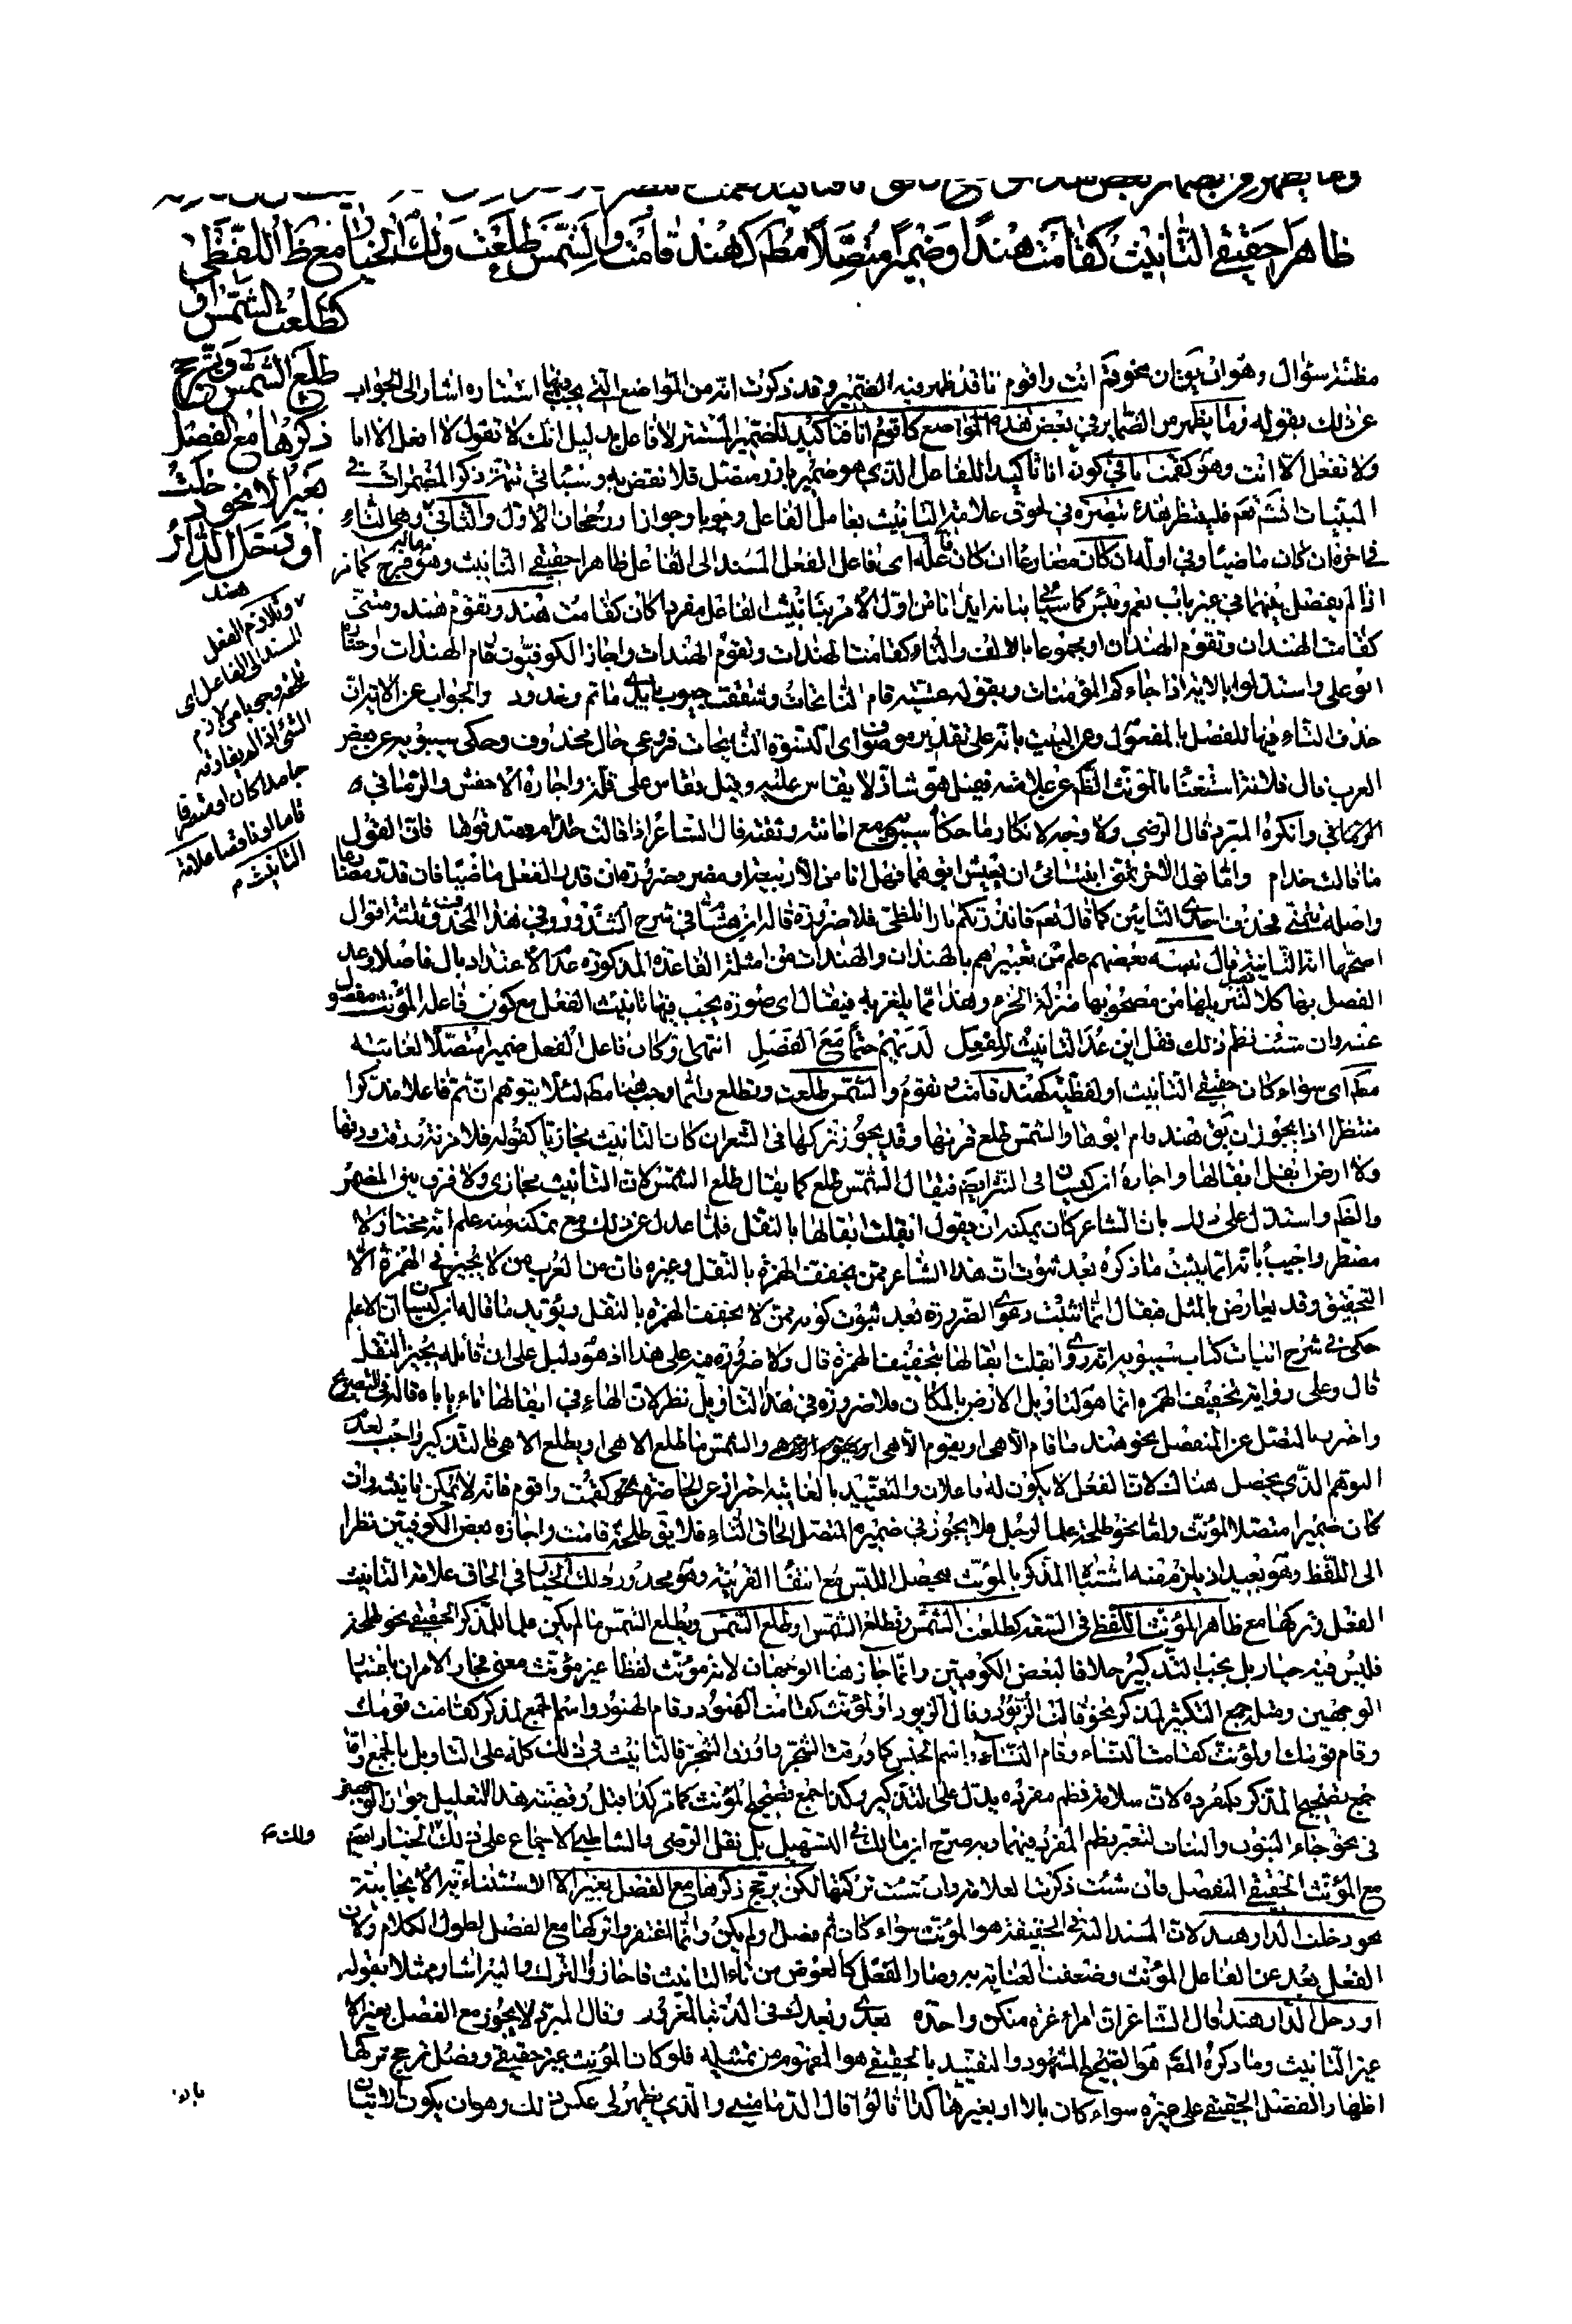 وما يظهر في بعض
ظاهرا حقيقي التأنيث كقامت هند او ضميرا متصلا مطلقا كهند قامت والشمس طلعت ولك الخيار مع ظاهر اللفظي
كطلعت الشمس او
طلع الشمس ويترجح
ذكرها مع الفصل
بغير الا نحو دخلت
او دخل الدار
هند
وتلازم الفعل
المسند الى الفاعل اى
الشئ اذا لم يفارقه
جامدا كان او متصرفا
تاما او ناقصا علامة
التأنيث م
مظنة سؤال وهو ان يق ان نحو قم انت واقوم انا قد ظهر فيه الضمير وقد ذكرت انه من المواضع التي يجب فيها استتاره اشار الى الجواب
عن ذلك بقوله وما يظهر من الضماير في بعض هذه المواضع كاقوم انا فتاكيد للضمير المستتر لا فاعل بدليل انك لا تقول لا افعل الا انا
ولا تفعل الا انت وهو كقمت انا في كون انا تأكيدا للفاعل الذي هو ضمير بارز متصل فلا نقض به وسيأتي تتمة ذكر المضمرات في
المبنيات انشم نعم فلينتظر هذه تبصرة في لحوق علامة التأنيث بعامل الفاعل وجوبا وجوازا ورجحان الاول والثاني وهي التاء
في اخره ان كان ماضيا وفي اوله ان كان مضارعا ان كان فاعله اى فاعل الفعل المسند الى الفاعل ظاهرا حقيقي التأنيث وهو ذو فرج كما مر
اذا لم يفصل بينهما في غير باب نعم وبئس كما سيأتي ايذانا من اول الامر بتأنيث الفاعل مفردا كان كقامت هند وتقوم هند ومثنى
كقامت الهندان وتقوم الهندان او مجموعا بالالف والتاء كقامت الهندات وتقوم الهندات واجاز الكوفيون قام الهندات واختاره
ابو علي واستدلوا بالاية اذا جاءك المؤمنات وبقوله عشية قام النائحات وشققت جيوب بايدي ماتم وخدود والجواب عن الاية ان
حذف التاء فيها للفصل بالمفعول وعن البيت بانه على تقدير موصوف اى النسوة النائحات فروعي حال محذوف وحكى سيبويه عن بعض
العرب قال فلانة استغناء بالمؤنث الظ عن علامته فقيل هو شاذ لا يقاس عليه وقيل يقاس على قلة واجازه الاخفش والرماني
وانكره المبرد قال الرضي ولا وجه لانكار ما حكاه سيبويه مع امانته وثقته قال الشاعر اذا قالت حذام فصدقوها فان القول
ما قالت حذام واما قول الاخر تمنى ابنتاي ان يعيش ابوهما فهل انا من الا ربيعة او مضر
واصله تتمنى فحذف احدى التائين كما قال تعم فانذرتكم نارا تلظى فلا ضرورة قاله ابن هشام في شرح الشذور وفي هذا المحذوف ثلثة اقوال
اصحها انه الثانية قال بعضهم علم من تعبيرهم بالهندان والهندات من امثلة القاعدة المذكورة عدم الاعتداد بال فاصلا وعد
الفصل بها كلا فصل لتنزيلها من مصحوبها منزلة الجزء وهذا مما يلغز به فيقال اى صورة يجب فيها تأنيث الفعل مع كون فاعله المؤنث مفصولا
عنه وان شئت نظم ذلك فقل اين غدا التأنيث للفعل لديهم حتما مع الفصل انتهى وكان فاعل الفعل ضميرا متصلا لغائبة
مط اى سواء كان حقيقي التأنيث او لفظيه كهند قامت وتقوم والشمس طلعت وتطلع وانما وجب هنا مط لئلا يتوهم ان ثم فاعلا مذكرا
منتظرا اذ يجوز ان يق هند قام ابوها والشمس طلع قرنها وقد يجوز تركها في الشعر ان كان التأنيث مجازيا كقوله فلا مزنة ودقت ودقها
ولا ارض ابقل ابقالها واجازه ابن كيسان في النثر ايضا فيقال الشمس طلع كما يقال طلع الشمس لان التأنيث مجازي ولا فرق بين المضمر
والظ واستدل على ذلك بان الشاعر كان يمكنه ان يقول ابقلت ابقالها بالنقل فلما عدل عن ذلك مع تمكنه منه علم انه مختار ولا
مضطر واجيب بانه انما يثبت ما ذكره بعد ثبوت ان هذا الشاعر ممن يخفف الهمزة بالنقل وغيره فان من العرب من لا يجيز في الهمزة الا
التحقيق وقد يعارض بالمثل فيقال انما تثبت دعوى الضرورة بعد ثبوت كونه ممن لا يخفف الهمزة بالنقل ويؤيد ما قاله ابن كيسان ان الاعلم
حكى في شرح ابيات كتاب سيبويه انه روى وابقلت ابقالها بتخفيف الهمزة قال ولا ضرورة فيه على هذا اذ هو دليل على ان قائله يجيز النقل
قال وعلى رواية تخفيف الهمزة انما هو لتأويل الارض بالمكان فلا ضرورة في هذا التأويل نظر لان الهاء في ابقالها تأباه قاله في التصريح
واخرج بالمتصل عن المنفصل نحو هند ما قام الا هي او يقوم الا هي والشمس ما طلع الا هي او يطلع الا هي فالتذكير واجب لعدم
التوهم الذي يحصل هناك لان الفعل لا يكون له فاعلان والتقييد بالغائبة احتراز عن الحاضرة نحو كقمت واقوم فانه لا يمكن تأنيثه وان
كان ضميرا متصلا لمؤنث واما نحو طلحة علما لرجل فلا يجوز في ضميره المتصل الحاق التاء فلا يق طلحة قامت واجازه بعض الكوفيين نظرا
الى اللفظ وهو بعيد اذ يلزم منه اشتباه المذكر بالمؤنث فيحصل اللبس مع انتفاء القرينة وهو محذور ولك الخيار في الحاق علامة التأنيث
الفعل وتركها مع ظاهر المؤنث اللفظي في السعة كطلعت الشمس وتطلع الشمس او طلع الشمس ويطلع الشمس ما لم يكن علما للمذكر الحقيقي نحو طلحة
فليس فيه خيار بل يجب التذكير خلافا لبعض الكوفيين وانما جاز هنا الوجهان لانه مؤنث لفظا غير مؤنث معنى فجاز الامران باعتبار
الوجهين ومثله جمع التكسير لمذكر نحو قالت الزيود وقال الزيود او لمؤنث كقامت الهنود وقام الهنود واسم الجمع لمذكر كقامت قومك
وقام قومك او لمؤنث كقامت النساء وقام النساء واسم الجنس كما ورقت الشجر واورق الشجر فالتأنيث في ذلك كله على التأويل بالجمع واما
جمع تصحيح المذكر فكمفرده لان سلامة نظم مفرده يدل على التذكير وكذا جمع تصحيح المؤنث كما مر كذا قيل وقضية هذا التعليل جواز الوجهين
في نحو جاء البنون والبنات لتغير نظم المفرد فيهما وبه صرح ابن مالك في التسهيل بل نقل الرضي والشاطبي الاجماع على ذلك ولك الخيار ايضا
مع المؤنث الحقيقي المنفصل فان شئت ذكرت العلامة وان شئت تركتها لكن يرجح ذكرها مع الفصل بغير الا الاستثنائية الايجابية
نحو دخلت الدار هند لان المسند اليه في الحقيقة هو المؤنث سواء كان ثم فصل او لم يكن وانما اغتفروا تركها مع الفصل لطول الكلام ولان
الفعل بعد عن الفاعل المؤنث وضعفت العناية به وصار الفصل كالعوض من تاء التأنيث فاجازوا الترك واليه اشار ممثلا بقوله
او دخل الدار هند قال الشاعر ان امرأ غره منكن واحدة بعدي وبعدك في الدنيا لمغرور وقال المبرد لا يجوز مع الفصل بغير الا
غير التأنيث وما ذكره المصـ هو الصحيح المشهور والتقييد بالحقيقي هو المفهوم من تمثيله فلو كان المؤنث غير حقيقي وفصل ترجح تركها
اظهارا لفضل الحقيقي على غيره سواء كان بالا او بغيرها كذا قالوا قال الدماميني والذي يظهر لى عكس ذلك وهو ان يكون الاتيان